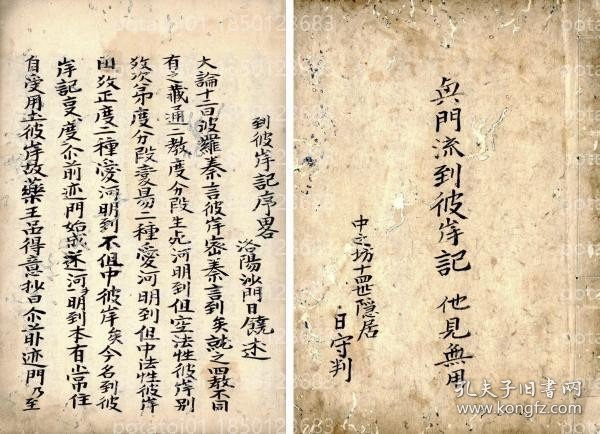 奥門流到彼岸記 他見無用
中之坊十四世隠居
日守判
到彼岸記序畧
洛陽沙門日饒述
大論十二曰波羅秦言彼岸蜜秦言到矣就之四教不同
有之藏通二教度分段生死河明到但空法性彼岸別
教次第度分段変易二種愛河明到但中法性彼岸
円教正度二種愛河明到不但中彼岸矣今名到彼
岸記変度尒前迹門始成迷河明到本有常住
自受用土彼岸故藥王品得意抄曰尒前迹門乃至
孔夫子旧书网
www.kongfz.com